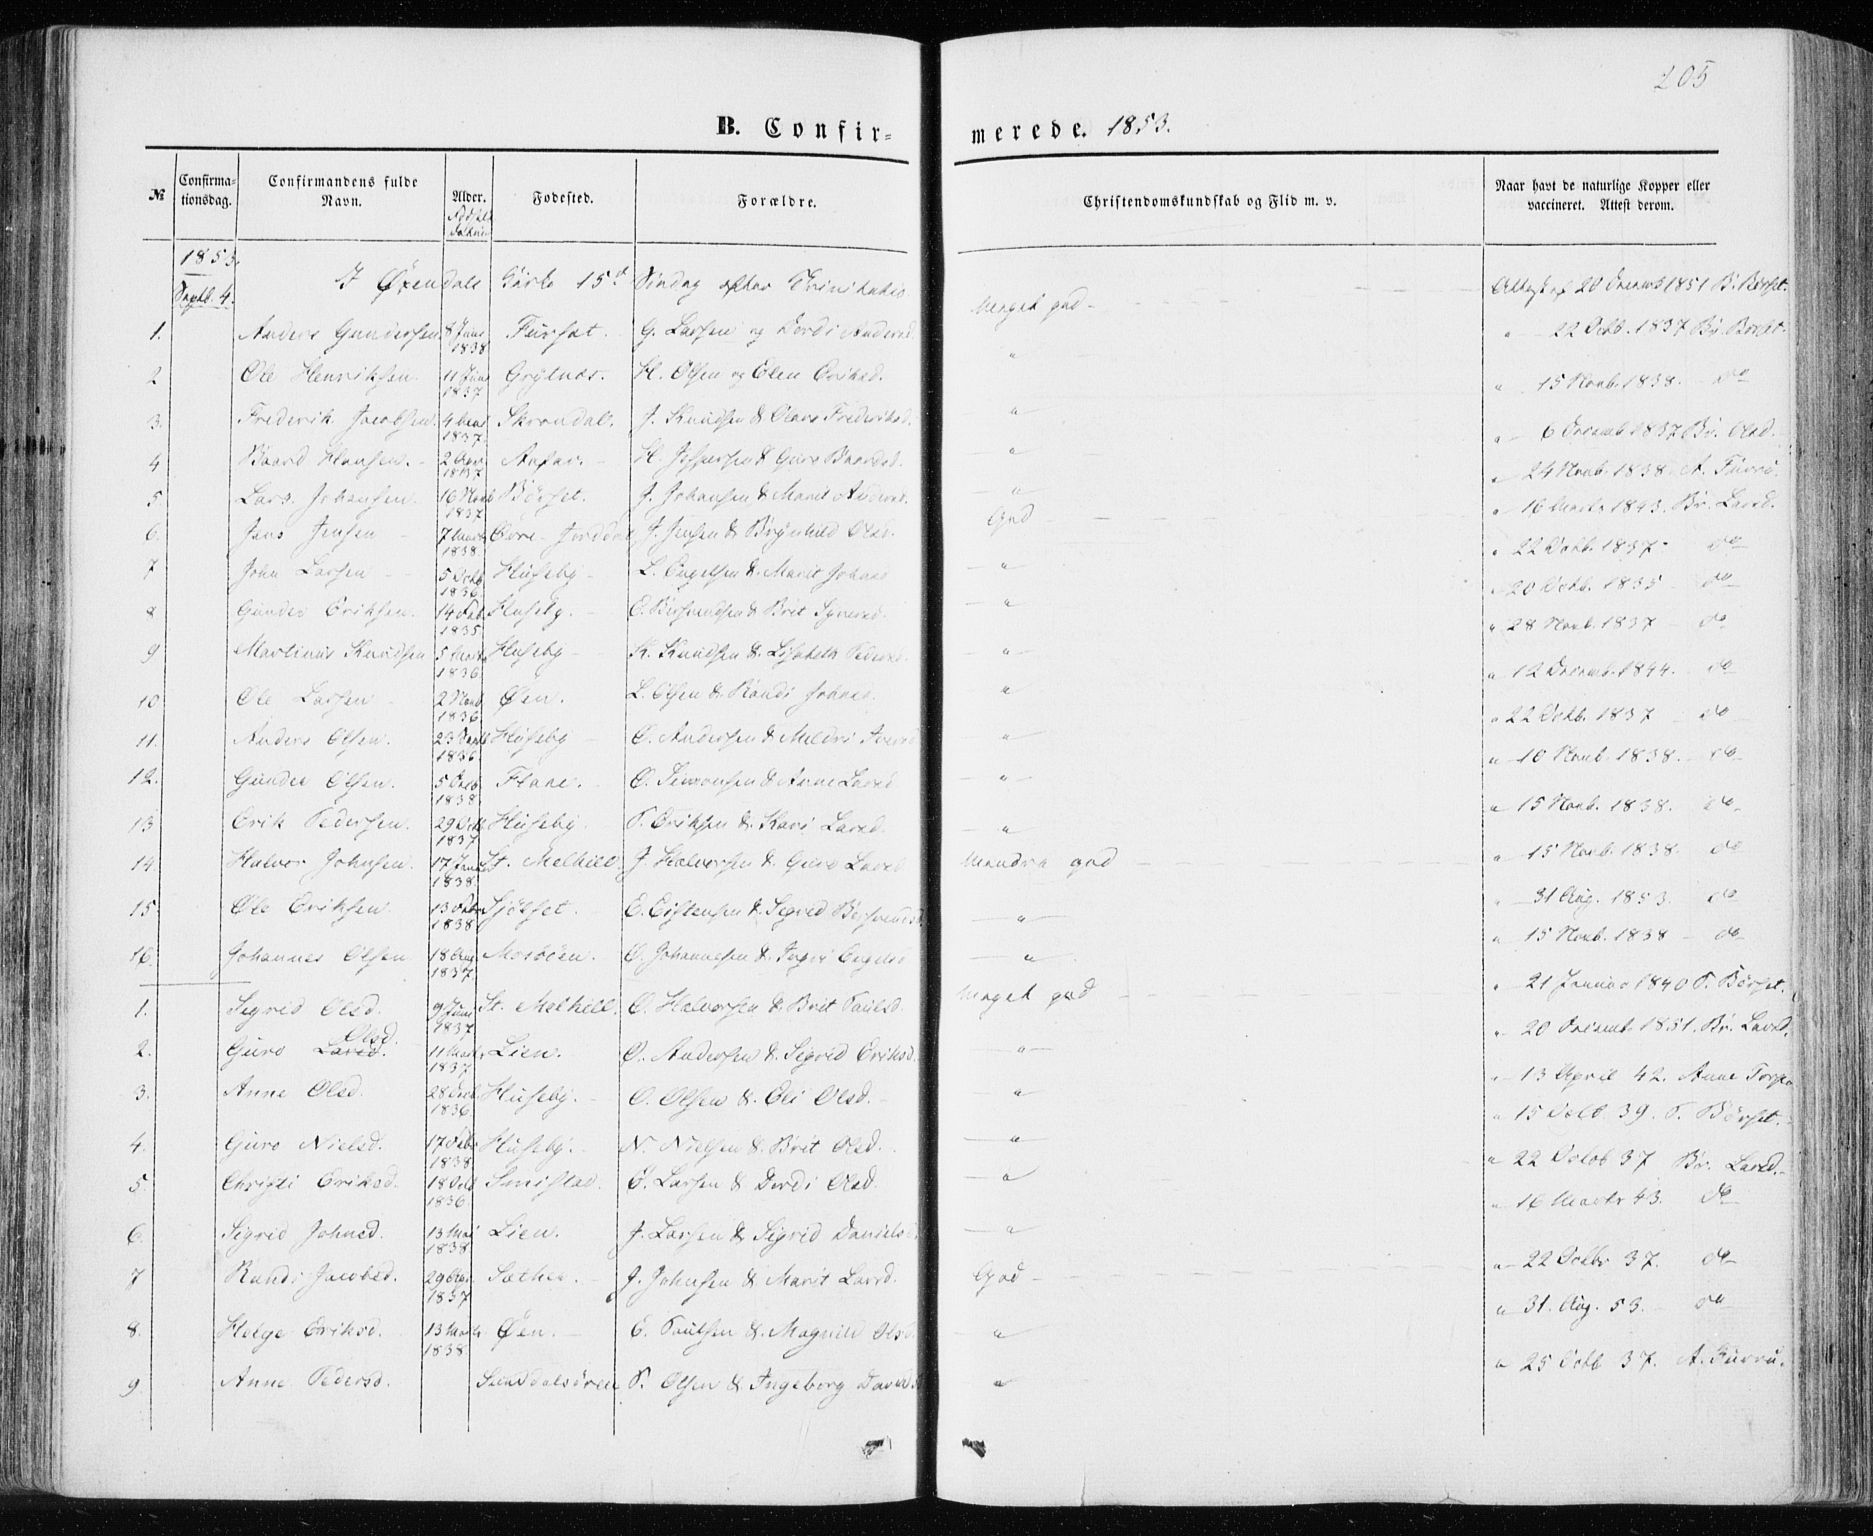 205
B. Confir=
merede. 1853.
№ Confirma-tionsdag. Confirmandens fulde Navn. Alder. Fødested. Forældre. Christendomskundskab og Flid m. v. Naar havt de naturlige Kopper eller vaccineret. Attest derom.
1853. Septb. 4. I Øxendals Kirke 15d Søndag efter Trinitatis
1. Anders Gundersen 8 Juni 1838 G. Larsen og Dordi Andersd. Meget god - Attest af 20 Decemb 1851 B. Børset.
2 Ole Henriksen 11 1837 Grytnes. H. Olsen og Elen Eriksd. " " 22 Octb. 1837 Br. Børset.
3. Frederik Jacobsen. 4 1837. J. Knudsen & Frederiksd. " " 15 Novb. 1838. do
4 Baard Hansen. 2 1837 H. Jespersen & Guro Baardsd. " " 6 Decemb 1837 Br. Olsd.
5. Lars Johansen. 16 Novb 1837 Børset. J. Johansen & Marit Andersd. " " 24 Novb. 1838. A. Furru.
6. Jens Jensen 7 Marts 1838 J. Jensen & Brynhild Olsd. God " 16 Marts 1843. Br. Larsd.
7 John Larsen 5 Octb 1836. Huseby L. Engelsen & Marit Johnsd " " 22 Octb. 1837 do
8 Gunder Eriksen. 14 Feb. 1835 Huseby. E. & Brit Syversd. " " 20 Octb. 1835 do
9 Martinus Knudsen 5 Marts 1836 Huseby K. Knudsen & Lisabeth Pedersd. " " 28 Novb. 1837 do
10 Ole Larsen 2 Novb 1836. Øen. L. Olsen & Randi Johnsd. " " 12 Decemb. 1844. do
11. Anders Olsen. 23 1836. Huseby O. Andersen & Meldri Iversd " " 22 Octb. 1837 do
12. Gunder Olsen. 5 1838. Flaae. O. & Anne Larsd " " 10 Novb. 1838. do
13 Erik Pedersen. 29 Octb 1837 Huseby. P. Eriksen & Kari Larsd. " " 15 Novb. 1838. do
14 Halvor Johnsen. 17 Januar 1838. St. Melhild. J. Halvorsen & Guro Larsd Mindre god " 15 Novb. 1838. do
15. Ole Eriksen 13 Febr 1838 E. Eistensen & Sigrid " " 31 Aug. 1853. do
16. Johannes Olsen 18 Aug. 1837. Mosbøen. O. Johannesen & Engelsd " " 15 Novb. 1838 do
1. Sigrid Olsd. 9 Juni 1837 St. Melhild. O. Halvorsen & Brit Paulsd. Meget god " 21 Januar 1840 P. Børset.
2. Guro Olsd. 11 Marts 1837 Lien. O. Andersen & Sigrid Eriksd. " " 20 Decemb. 1851. Br. Larsd.
3. Anne Olsd. 28 1836 Huseby. O. Olsen & Eli Olsd. " " 13 April 42. Anne
4. Guro Nielsd. 17 Febr 1838 Huseby. N. Nielsen & Brit Olsd. " " 15 Octb 39. P. Børset.
5. Christi Eriksd. 18 1836 Smistad. E. Larsen & Dordi Olsd. " " 22 Octob 37 Br. Larsd.
6. Sigrid Johnsd. 13 Mai 1838 Lien. J. Larsen & Sigrid Danielsd. " 16 Marts 43. do
7 Randi Jacobsd. 29 1837 Sæther. J. Johnsen & Marit Larsd. God - " 22 Octbr 37. do
8. Helge Eriksd. 13 Marts 1838 Øen. E. Paulsen & Magnild Olsd. " " 31. Aug. 53. do
9. Anne Pedersd. P. Olsen & Ingeborg " " 25 Octb 37. A. Furru.